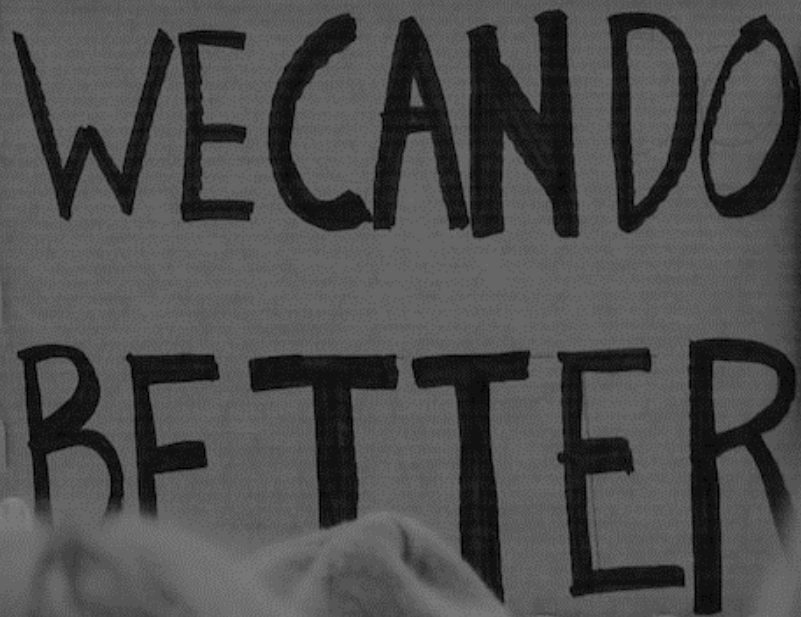 WE CAN DO
BETTER